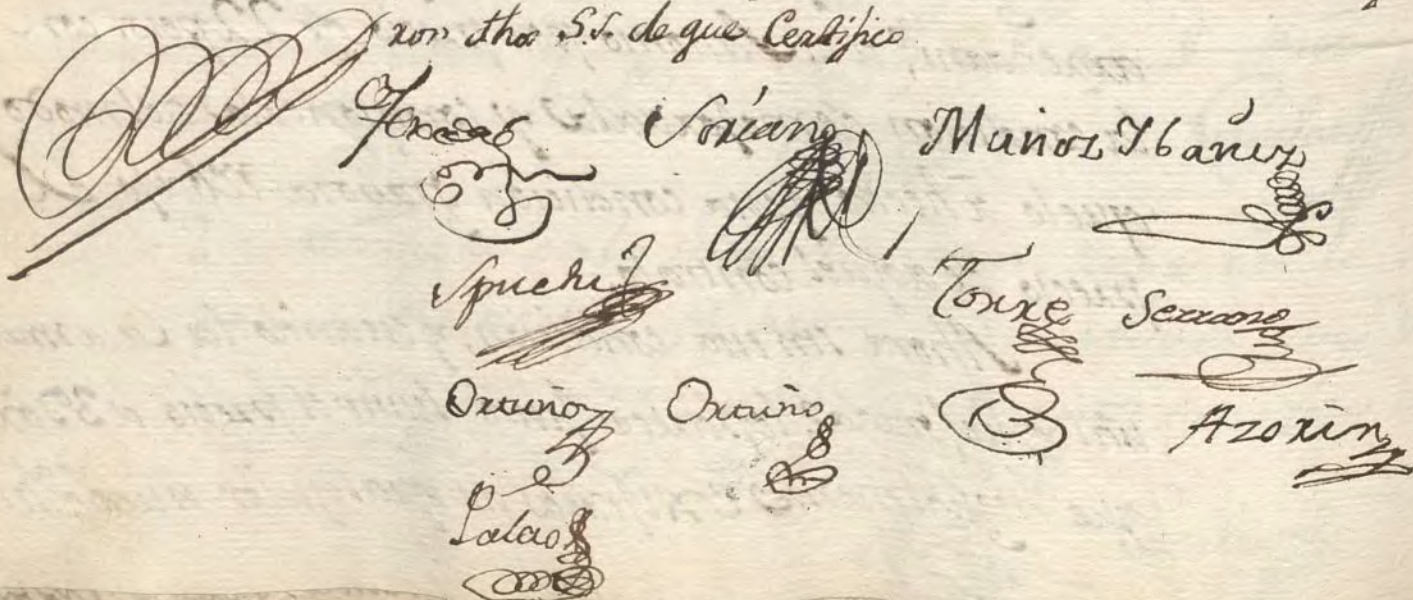 ron dhos S.S. de que Certifico
Soriano Muñoz Ybañez
Spuche
Torre Serrano
Ortuño Ortuño
Azorin
Palao